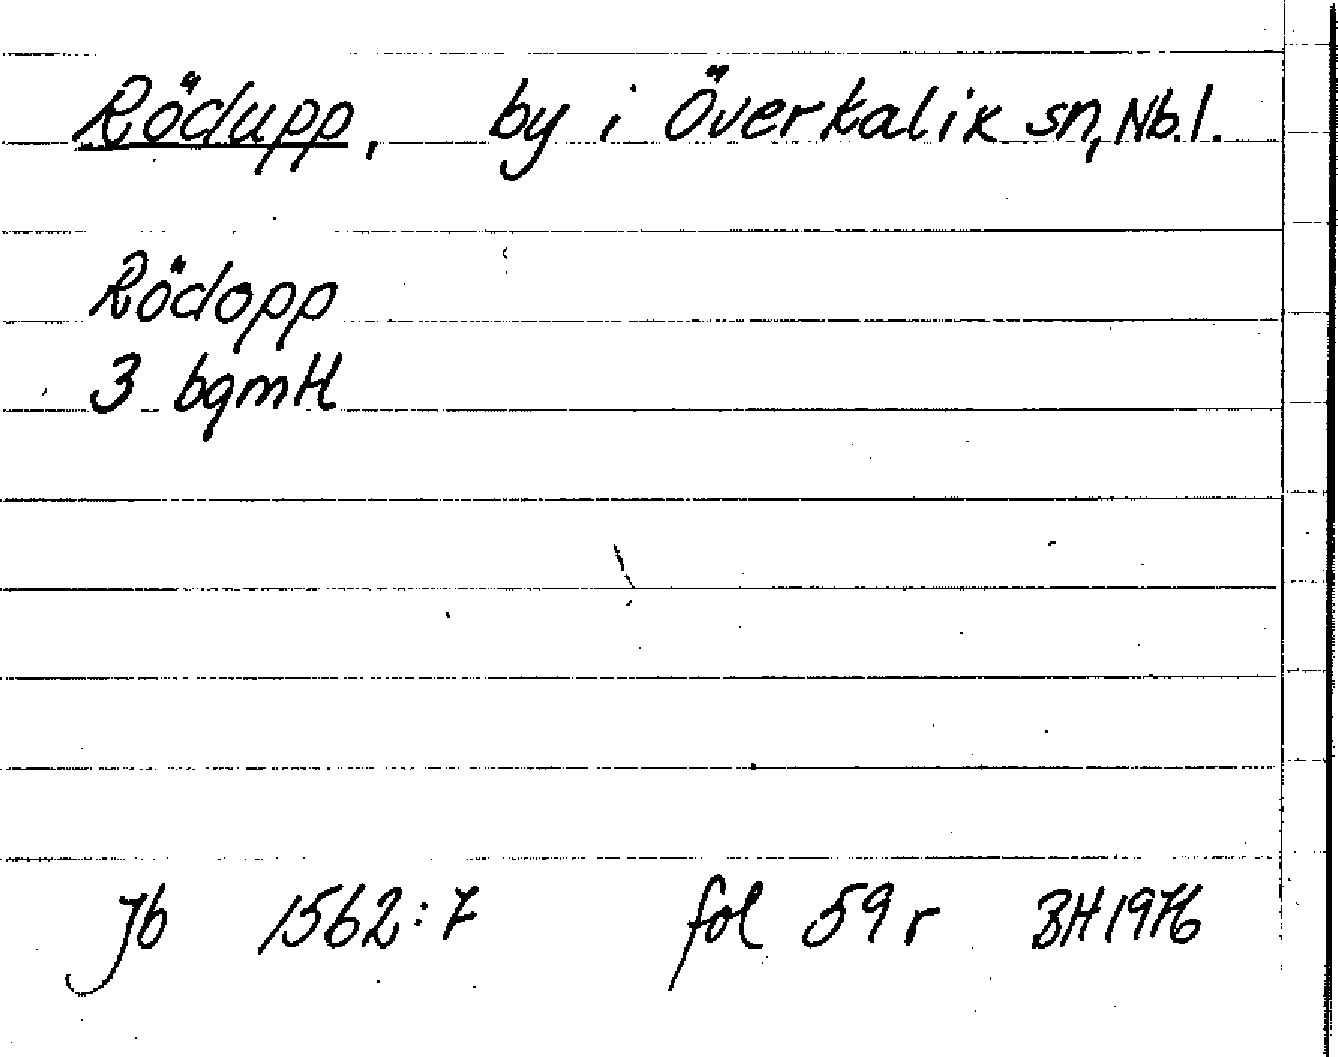 Rödupp, by i Överkalix sn, Nb.l.
Rödopp
3 bgmH
Jb 1562:7 fol 59 r BH 1976